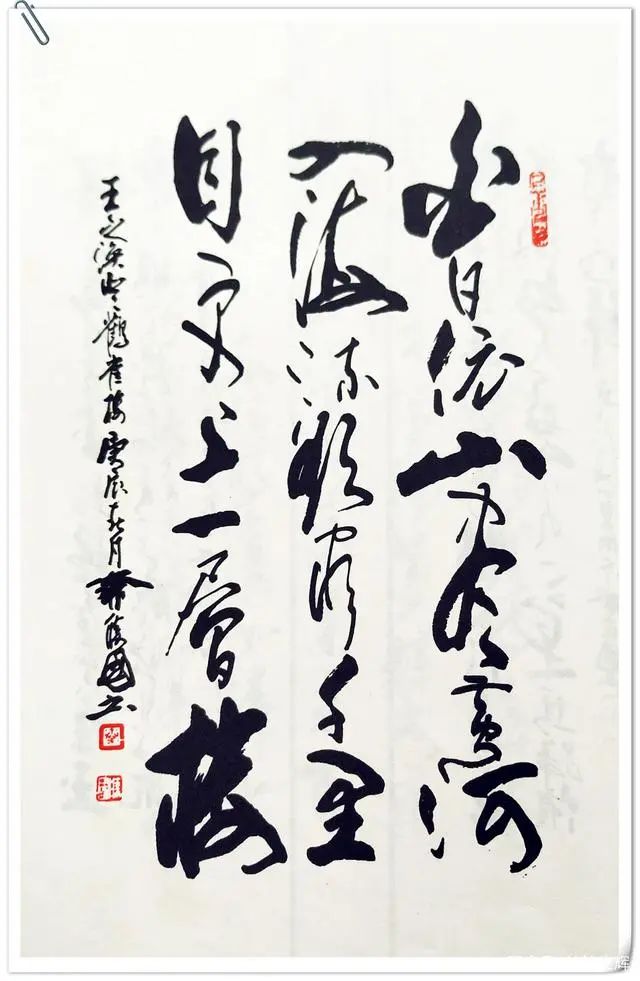 白日依山尽黄河
入海流欲穷千里
目更上一層楼
王之涣登鹤雀楼庚辰春月國书